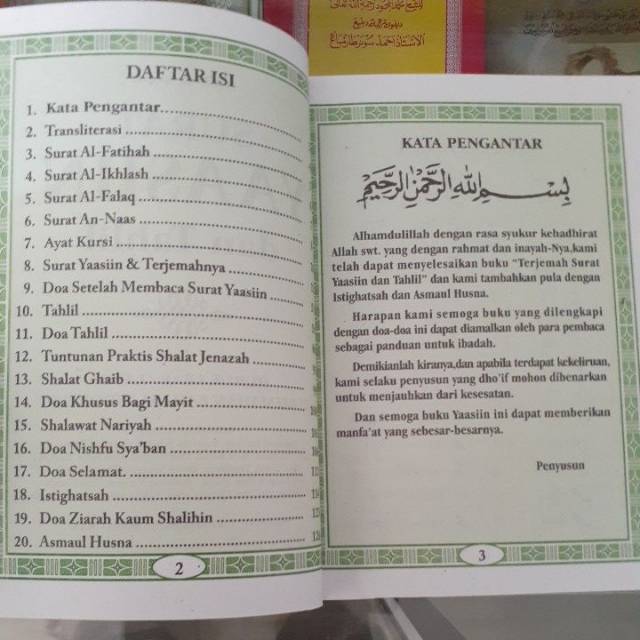 DAFTAR ISI
1. Kata Pengantar
2. Transliterasi
3. Surat Al-Fatihah
4. Surat Al-Ikhlash
5. Surat Al-Falaq
6. Surat An-Naas
7. Ayat Kursi
8. Surat Yaasiin & Terjemahnya
9. Doa Setelah Membaca Surat Yaasiin
10. Tahlil
11. Doa Tahlil
12. Tuntunan Praktis Shalat Jenazah
13. Shalat Ghaib
14. Doa Khusus Bagi Mayit
15. Shalawat Nariyah
16. Doa Nishfu Sya'ban
17. Doa Selamat.
18. Istighatsah
19. Doa Ziarah Kaum Shalihin
20. Asmaul Husna
2
KATA PENGANTAR
بِسْمِ اللهِ الرَّحْمٰنِ الرَّحِيْمِ
Alhamdulillah dengan rasa syukur kehadhirat
Allah swt. yang dengan rahmat dan inayah-Nya,kami
telah dapat menyelesaikan buku "Terjemah Surat
Yaasiin dan Tahlil" dan kami tambahkan pula dengan
Istighatsah dan Asmaul Husna.
Harapan kami semoga buku yang dilengkapi
dengan doa-doa ini dapat diamalkan oleh para pembaca
sebagai panduan untuk ibadah.
Demikianlah kiranya,dan apabila terdapat kekeliruan,
kami selaku penyusun yang dho'if mohon dibenarkan
untuk menjauhkan dari kesesatan.
Dan semoga buku Yaasiin ini dapat memberikan
manfa'at yang sebesar-besarnya.
Penyusun
3